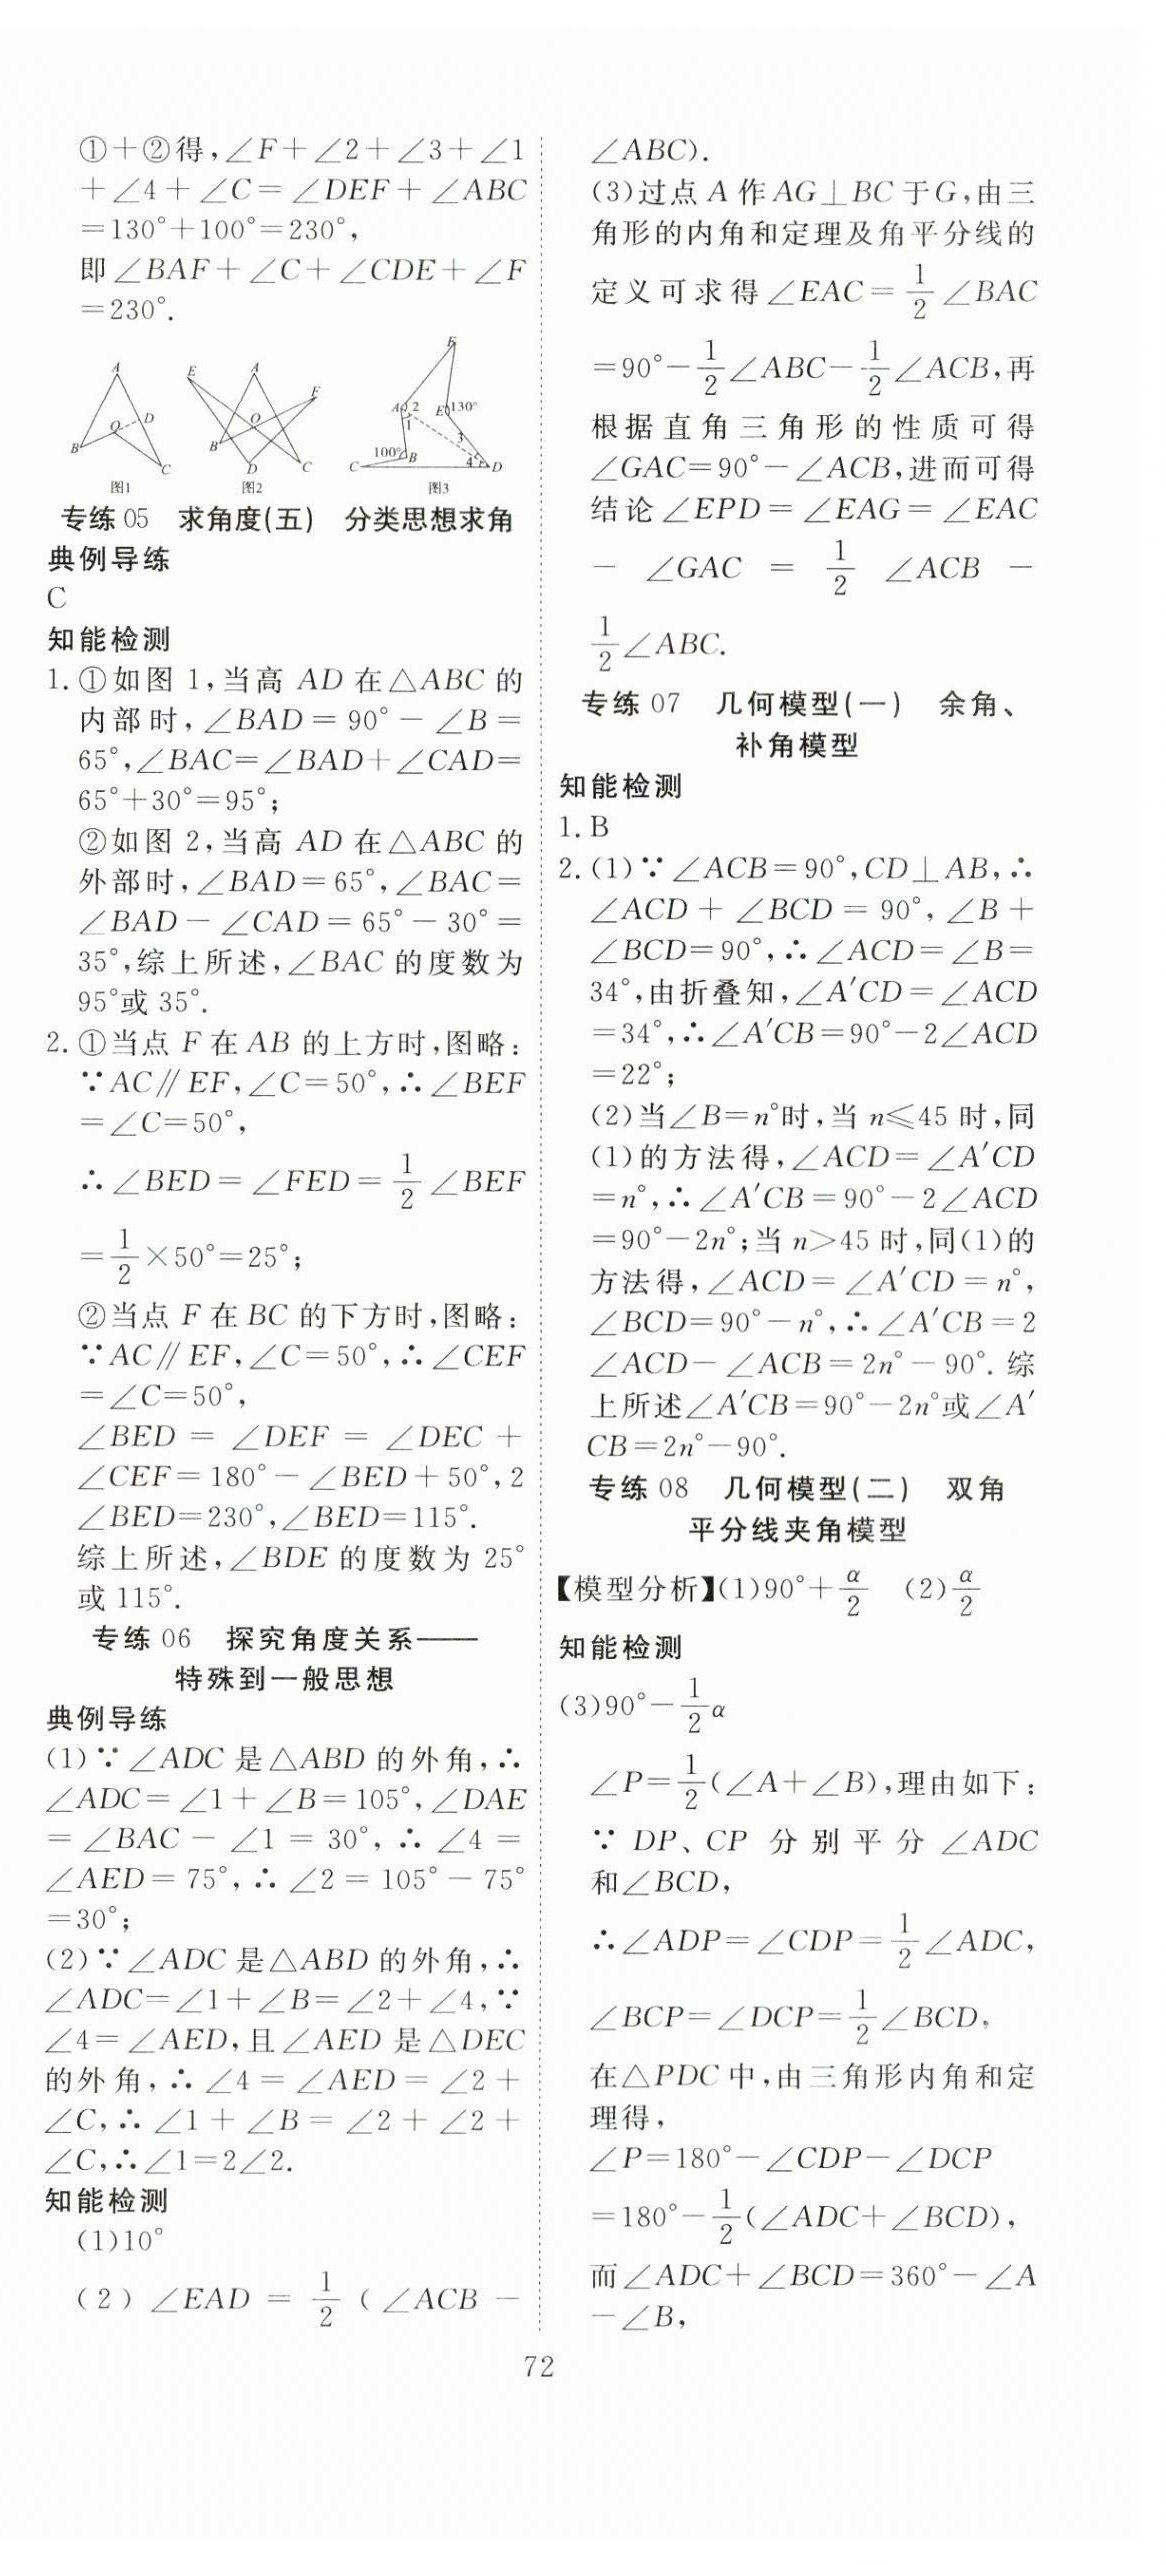 ①+②得,∠F+∠2+∠3+∠1
+∠4+∠C=∠DEF+∠ABC
=130°+100°=230°,
即∠BAF+∠C+∠CDE+∠F
=230°.
A
O
D
B
C
图1
E
A
F
O
B
D
C
图2
F
A
2
1
E
130°
3
100°
B
4
C
D
图3
专练 05 求角度(五) 分类思想求角
典例导练
C
知能检测
1. ①如图 1,当高 AD 在△ABC 的
内部时,∠BAD=90°-∠B=
65°,∠BAC=∠BAD+∠CAD=
65°+30°=95°;
②如图 2,当高 AD 在△ABC 的
外部时,∠BAD=65°,∠BAC=
∠BAD-∠CAD=65°-30°=
35°,综上所述,∠BAC 的度数为
95°或 35°.
2. ①当点 F 在 AB 的上方时,图略:
∵AC∥EF,∠C=50°,∴∠BEF
=∠C=50°,
∴∠BED=∠FED=1/2∠BEF
=1/2×50°=25°;
②当点 F 在 BC 的下方时,图略:
∵AC∥EF,∠C=50°,∴∠CEF
=∠C=50°,
∠BED=∠DEF=∠DEC+
∠CEF=180°-∠BED+50°,2
∠BED=230°,∠BED=115°.
综上所述,∠BDE 的度数为 25°
或 115°.
专练 06 探究角度关系——
特殊到一般思想
典例导练
(1)∵∠ADC 是△ABD 的外角,∴
∠ADC=∠1+∠B=105°,∠DAE
=∠BAC-∠1=30°,∴∠4=
∠AED=75°,∴∠2=105°-75°
=30°;
(2)∵∠ADC 是△ABD 的外角,∴
∠ADC=∠1+∠B=∠2+∠4,∵
∠4=∠AED,且∠AED 是△DEC
的外角,∴∠4=∠AED=∠2+
∠C,∴∠1+∠B=∠2+∠2+
∠C,∴∠1=2∠2.
知能检测
(1)10°
(2)∠EAD=1/2(∠ACB-
∠ABC).
(3)过点 A 作 AG⊥BC 于 G,由三
角形的内角和定理及角平分线的
定义可求得∠EAC=1/2∠BAC
=90°-1/2∠ABC-1/2∠ACB,再
根据直角三角形的性质可得
∠GAC=90°-∠ACB,进而可得
结论∠EPD=∠EAG=∠EAC
-∠GAC=1/2∠ACB-
1/2∠ABC.
专练 07 几何模型(一) 余角、
补角模型
知能检测
1. B
2. (1)∵∠ACB=90°,CD⊥AB,∴
∠ACD+∠BCD=90°,∠B+
∠BCD=90°,∴∠ACD=∠B=
34°,由折叠知,∠A′CD=∠ACD
=34°,∴∠A′CB=90°-2∠ACD
=22°;
(2)当∠B=n°时,当 n≤45 时,同
(1)的方法得,∠ACD=∠A′CD
=n°,∴∠A′CB=90°-2∠ACD
=90°-2n°;当 n>45 时,同(1)的
方法得,∠ACD=∠A′CD=n°,
∠BCD=90°-n°,∴∠A′CB=2
∠ACD-∠ACB=2n°-90°. 综
上所述∠A′CB=90°-2n°或∠A′
CB=2n°-90°.
专练 08 几何模型(二) 双角
平分线夹角模型
【模型分析】(1)90°+α/2 (2)α/2
知能检测
(3)90°-1/2α
∠P=1/2(∠A+∠B),理由如下:
∵DP、CP 分别平分∠ADC
和∠BCD,
∴∠ADP=∠CDP=1/2∠ADC,
∠BCP=∠DCP=1/2∠BCD,
在△PDC 中,由三角形内角和定
理得,
∠P=180°-∠CDP-∠DCP
=180°-1/2(∠ADC+∠BCD),
而∠ADC+∠BCD=360°-∠A
-∠B,
72